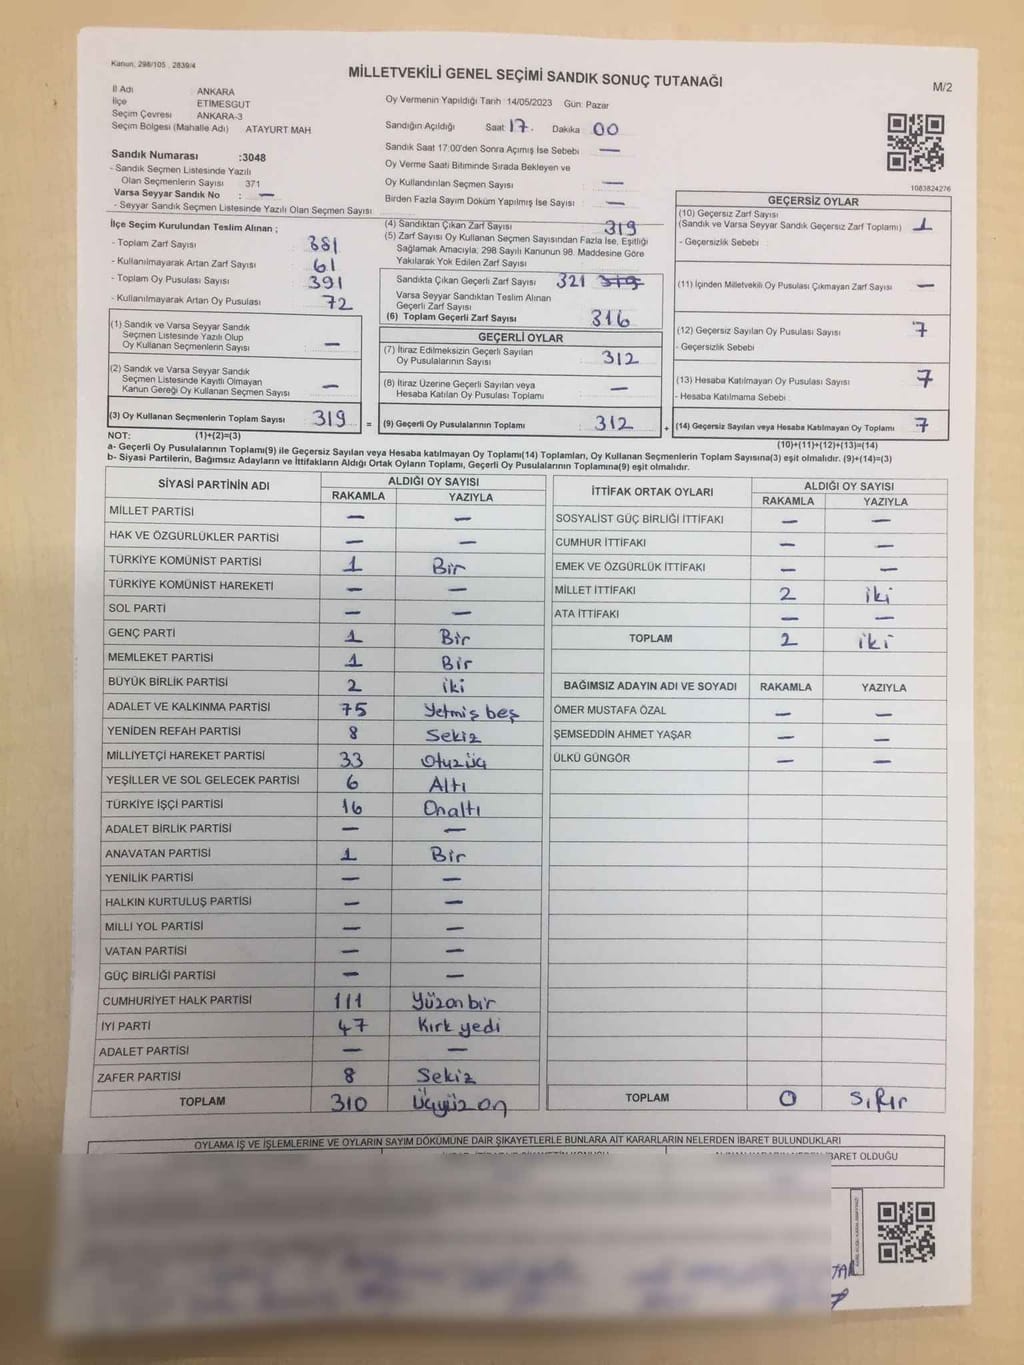 Kanun, 298/105 , 2839/4
MİLLETVEKİLİ GENEL SEÇİMİ SANDIK SONUÇ TUTANAĞI
M/2
İl Adı ANKARA
İlçe ETİMESGUT
Seçim Çevresi ANKARA-3
Seçim Bölgesi (Mahalle Adı) ATAYURT MAH
Oy Vermenin Yapıldığı Tarih 14/05/2023 Gün: Pazar
Sandığın Açıldığı Saat 17. Dakika 00
Sandık Saat 17:00'den Sonra Açımış İse Sebebi —
Oy Verme Saati Bitiminde Sırada Bekleyen ve
Oy Kullandırılan Seçmen Sayısı —
Birden Fazla Sayım Döküm Yapılmış İse Sayısı —
1083824276
Sandık Numarası :3048
- Sandık Seçmen Listesinde Yazılı
Olan Seçmenlerin Sayısı 371
Varsa Seyyar Sandık No : —
- Seyyar Sandık Seçmen Listesinde Yazılı Olan Seçmen Sayısı
İlçe Seçim Kurulundan Teslim Alınan ;
- Toplam Zarf Sayısı 381
- Kullanılmayarak Artan Zarf Sayısı 61
- Toplam Oy Pusulası Sayısı 391
- Kullanılmayarak Artan Oy Pusulası 72
(1) Sandık ve Varsa Seyyar Sandık
Seçmen Listesinde Yazılı Olup
Oy Kullanan Seçmenlerin Sayısı —
(2) Sandık ve Varsa Seyyar Sandık
Seçmen Listesinde Kayıtlı Olmayan
Kanun Gereği Oy Kullanan Seçmen Sayısı —
(3) Oy Kullanan Seçmenlerin Toplam Sayısı 319 =
(4) Sandıktan Çıkan Zarf Sayısı 319
(5) Zarf Sayısı Oy Kullanan Seçmen Sayısından Fazla İse, Eşitliği
Sağlamak Amacıyla, 298 Sayılı Kanunun 98. Maddesine Göre
Yakılarak Yok Edilen Zarf Sayısı
Sandıkta Çıkan Geçerli Zarf Sayısı 321 319
Varsa Seyyar Sandıktan Teslim Alınan
Geçerli Zarf Sayısı
(6) Toplam Geçerli Zarf Sayısı 316
GEÇERLİ OYLAR
(7) İtiraz Edilmeksizin Geçerli Sayılan
Oy Pusulalarının Sayısı 312
(8) İtiraz Üzerine Geçerli Sayılan veya
Hesaba Katılan Oy Pusulası Toplamı —
(9) Geçerli Oy Pusulalarının Toplamı 312 +
GEÇERSİZ OYLAR
(10) Geçersiz Zarf Sayısı
(Sandık ve Varsa Seyyar Sandık Geçersiz Zarf Toplamı) 1
- Geçersizlik Sebebi
(11) İçinden Milletvekili Oy Pusulası Çıkmayan Zarf Sayısı —
(12) Geçersiz Sayılan Oy Pusulası Sayısı 7
- Geçersizlik Sebebi
(13) Hesaba Katılmayan Oy Pusulası Sayısı 7
- Hesaba Katılmama Sebebi
(14) Geçersiz Sayılan veya Hesaba Katılmayan Oy Toplamı 7
NOT: (1)+(2)=(3)
(10)+(11)+(12)+(13)=(14)
a- Geçerli Oy Pusulalarının Toplamı(9) ile Geçersiz Sayılan veya Hesaba katılmayan Oy Toplamı(14) Toplamları, Oy Kullanan Seçmenlerin Toplam Sayısına(3) eşit olmalıdır. (9)+(14)=(3)
b- Siyasi Partilerin, Bağımsız Adayların ve İttifakların Aldığı Ortak Oyların Toplamı, Geçerli Oy Pusulalarının Toplamına(9) eşit olmalıdır.
SİYASİ PARTİNİN ADI ALDIĞI OY SAYISI
RAKAMLA YAZIYLA
MİLLET PARTİSİ — —
HAK VE ÖZGÜRLÜKLER PARTİSİ — —
TÜRKİYE KOMÜNİST PARTİSİ 1 Bir
TÜRKİYE KOMÜNİST HAREKETİ — —
SOL PARTİ — —
GENÇ PARTİ 1 Bir
MEMLEKET PARTİSİ 1 Bir
BÜYÜK BİRLİK PARTİSİ 2 iki
ADALET VE KALKINMA PARTİSİ 75 Yetmiş beş
YENİDEN REFAH PARTİSİ 8 Sekiz
MİLLİYETÇİ HAREKET PARTİSİ 33 Otuzüç
YEŞİLLER VE SOL GELECEK PARTİSİ 6 Altı
TÜRKİYE İŞÇİ PARTİSİ 16 Onaltı
ADALET BİRLİK PARTİSİ — —
ANAVATAN PARTİSİ 1 Bir
YENİLİK PARTİSİ — —
HALKIN KURTULUŞ PARTİSİ — —
MİLLİ YOL PARTİSİ — —
VATAN PARTİSİ — —
GÜÇ BİRLİĞİ PARTİSİ — —
CUMHURİYET HALK PARTİSİ 111 Yüzonbir
İYİ PARTİ 47 Kırk yedi
ADALET PARTİSİ — —
ZAFER PARTİSİ 8 Sekiz
TOPLAM 310 Üçyüz on
İTTİFAK ORTAK OYLARI ALDIĞI OY SAYISI
RAKAMLA YAZIYLA
SOSYALİST GÜÇ BİRLİĞİ İTTİFAKI — —
CUMHUR İTTİFAKI — —
EMEK VE ÖZGÜRLÜK İTTİFAKI — —
MİLLET İTTİFAKI 2 iki
ATA İTTİFAKI — —
TOPLAM 2 iki
BAĞIMSIZ ADAYIN ADI VE SOYADI RAKAMLA YAZIYLA
ÖMER MUSTAFA ÖZAL — —
ŞEMSEDDİN AHMET YAŞAR — —
ÜLKÜ GÜNGÖR — —
TOPLAM 0 Sıfır
OYLAMA İŞ VE İŞLEMLERİNE VE OYLARIN SAYIM DÖKÜMÜNE DAİR ŞİKAYETLERLE BUNLARA AİT KARARLARIN NELERDEN İBARET BULUNDUKLARI
BARET OLDUĞU